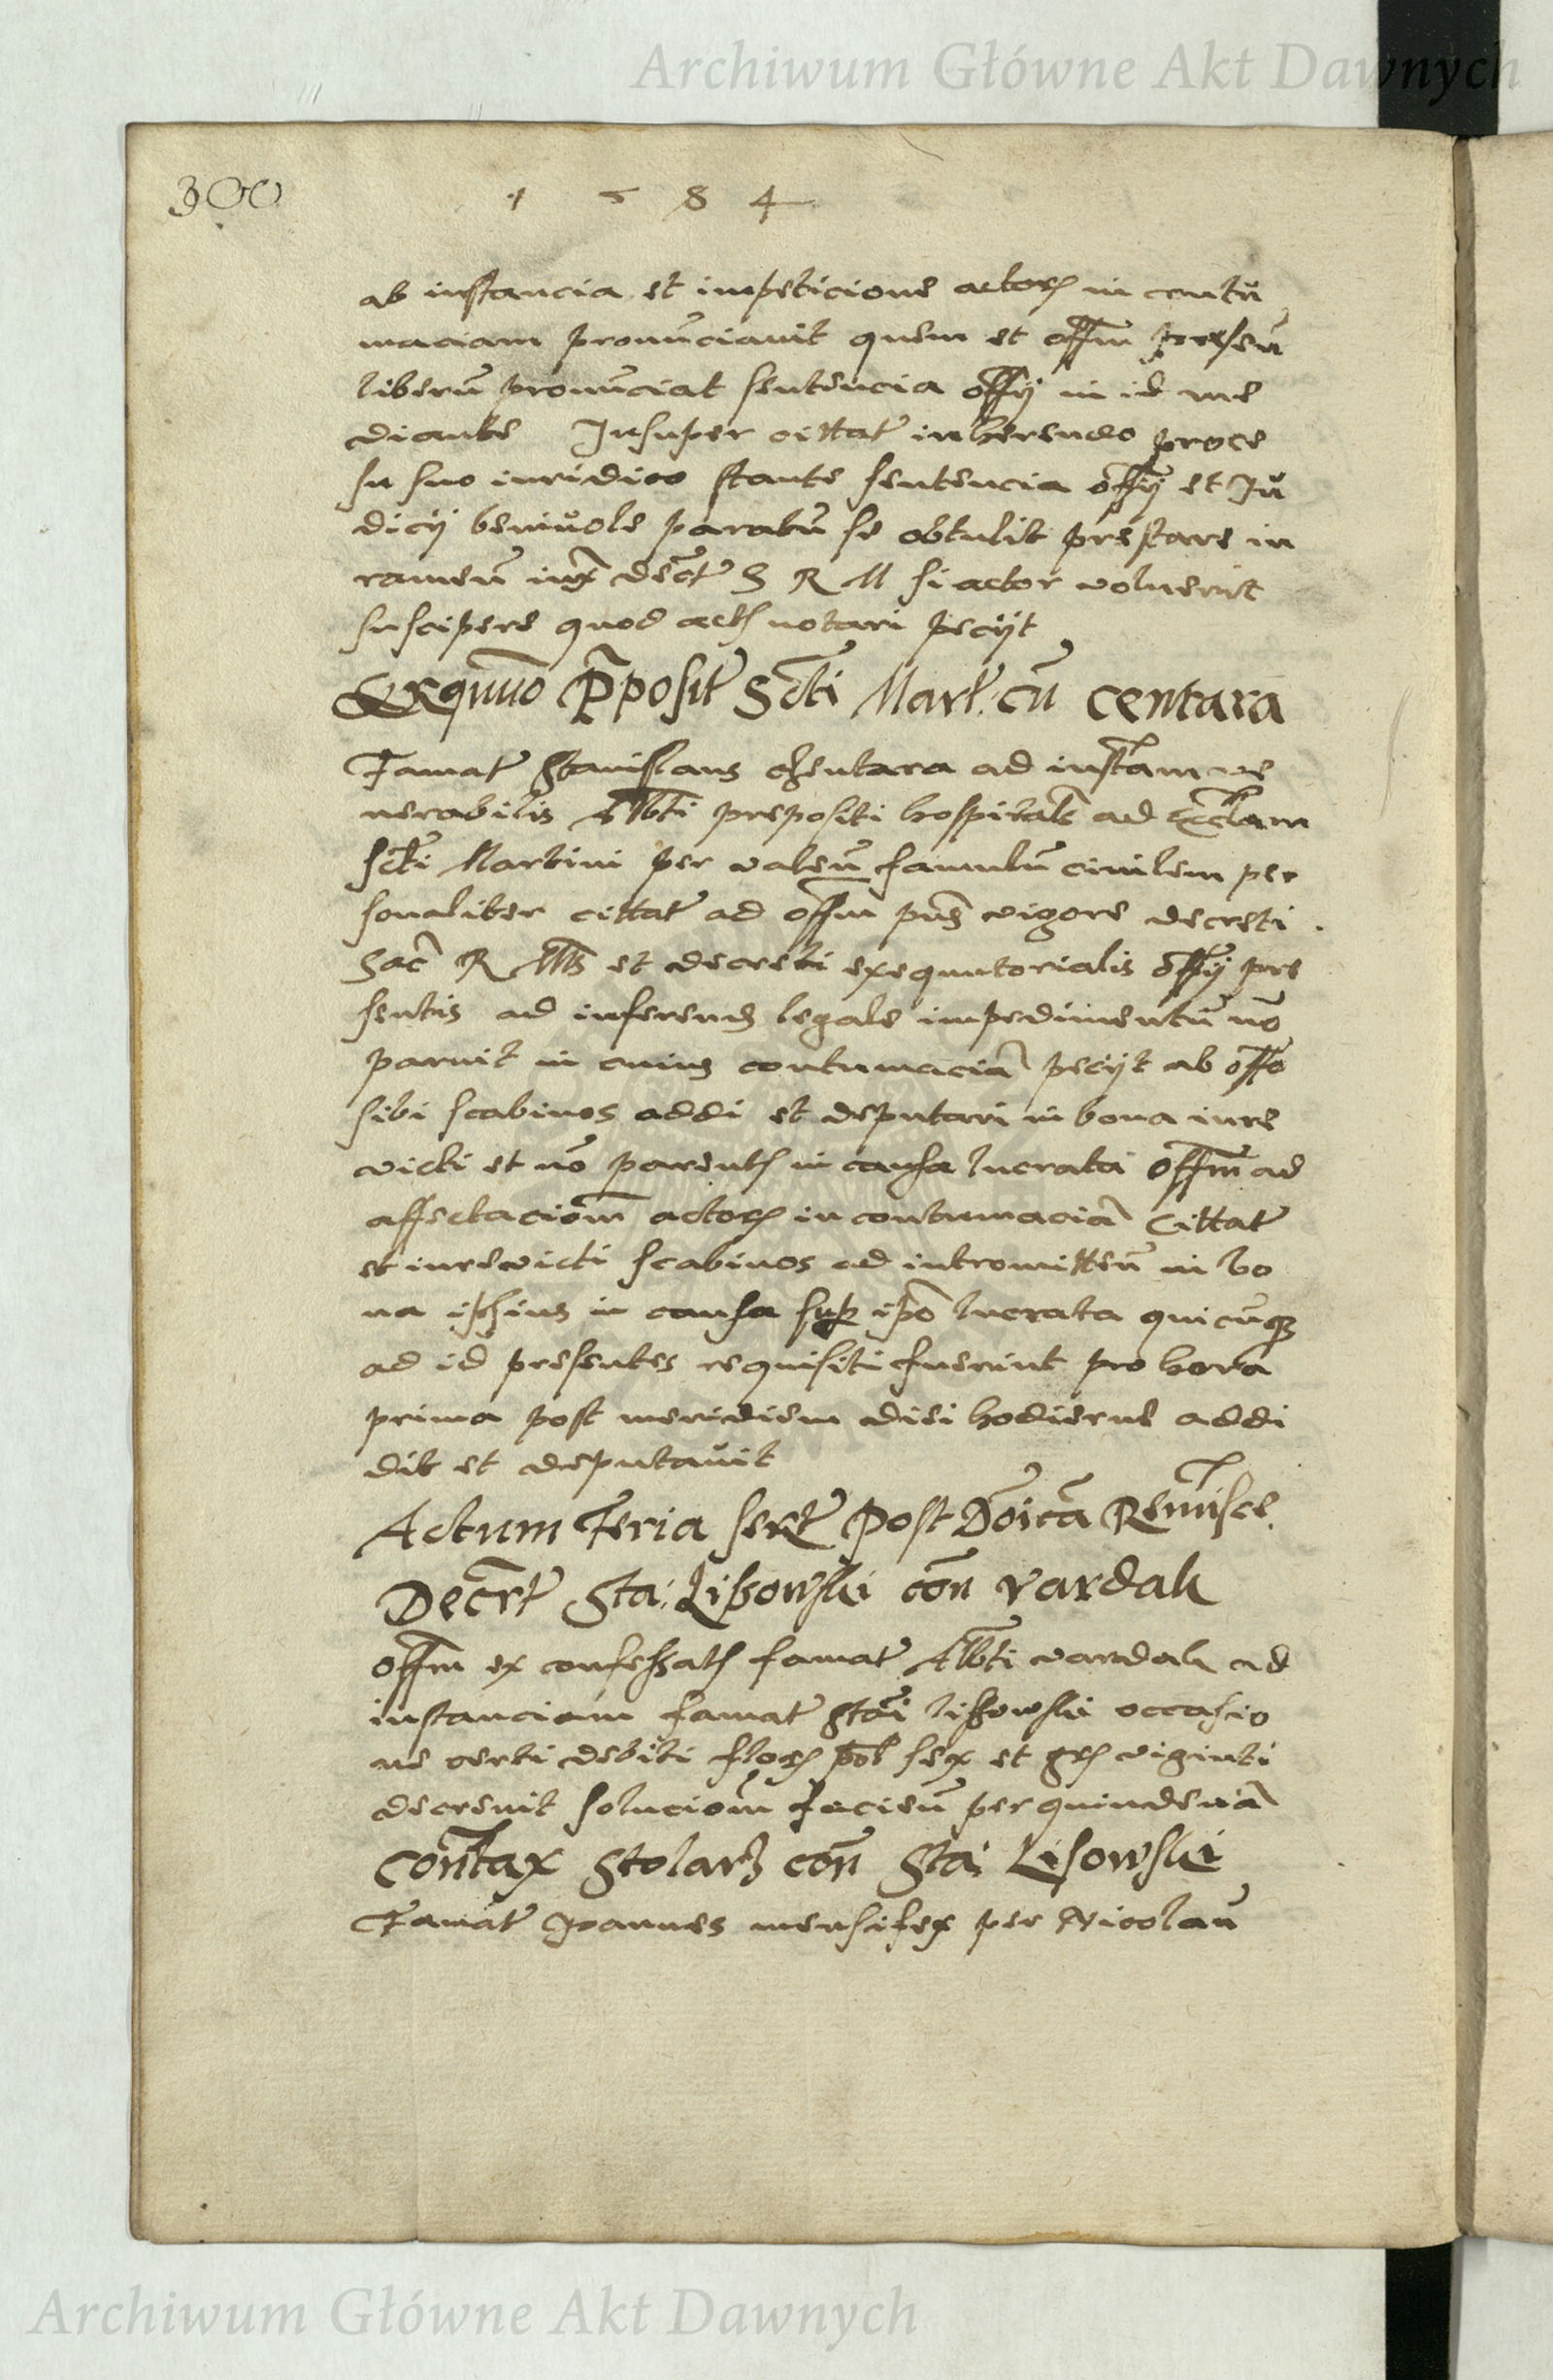 Archiwum Główne Akt Dawnych
300
1 5 8 4
ab instancia et impeticione actors in contu
maciam pronunciavit quem et offm presen
liberu pronunciat sentencia offy in id me
diante Insuper cittat inherendo proce
su suo iuridico stante sentencia offy et Ju
dicy benivole paratu se obtulit prestare iu
ramen iux decr S R M si actor voluerit
suscipere quod acts notari peciit
Exequuo Pposit Scti Mart: cu Centara
Famat Stanislaus Chentara ad instam ve
nerabilis Albti prepositi hospitalis ad Eccl̃am
Scti Martini per valen famulu civilem per
sonaliter cittat ad offm pns vigore decreti
Sac R Mtis et decreti exequutorialis offy pre
sentis ad inferend legale impedimentu no
paruit in cuius contumacia peciit ab offo
sibi scabinos addi et deputari in bona iure
victi et no parents in causa lucrata offm ad
affectacionm actors in contumacia Cittat
et iurevicti scabinos ad intromitten in bo
na ipsius in causa sup ipo lucrata quicunq
ad id presentes requisiti fuerint pro hora
prima post meridiem diei hodierne addi
dit et deputavit
Actum Feria sext Post Doicã Reminisce.
Decrt Sta: Lissowski con Vardak
offm ex confessats famat Albti Vardak ad
instanciam famat Stai Lissowski occasio
ne certi debiti flors pol sex et grs viginti
decrevit solucionm facien per quindena
Contax Stolarz con Sta: Lisowski
Famat Joannes mensifex per Nicolau
Archiwum Główne Akt Dawnych